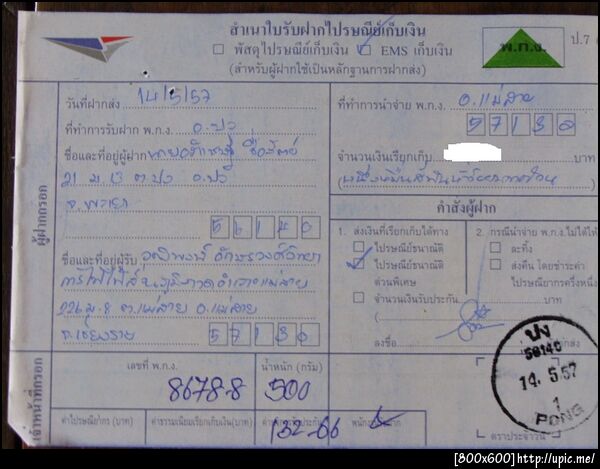 สำเนาใบรับฝากไปรษณีย์เก็บเงิน
พัสดุไปรษณีย์เก็บเงิน EMS เก็บเงิน
(สำหรับผู้ฝากใช้เป็นหลักฐานการฝากส่ง)
พ.ก.ง.
ป.7
วันที่ฝากส่ง 14/5/57
ที่ทำการรับฝาก พ.ก.ง. อ.ปง
ชื่อและที่อยู่ผู้ฝาก
21 ม.13 ต.ปง อ.ปง
จ.พะเยา
56140
ชื่อและที่อยู่ผู้รับ
226 ม.8 ต.แม่สาย อ.แม่สาย
จ.เชียงราย 57130
ผู้ฝากกรอก
ที่ทำการนำจ่าย พ.ก.ง. อ.แม่สาย
57130
จำนวนเงินเรียกเก็บ บาท
คำสั่งผู้ฝาก
1. ส่งเงินที่เรียกเก็บได้ทาง
ไปรษณีย์ธนาณัติ
ไปรษณีย์ธนาณัติ
ด่วนพิเศษ
จำนวนเงินรับประกัน บาท
ลงชื่อ
2. กรณีนำจ่าย พ.ก.ง.ไม่ได้ให้
ละทิ้ง
ส่งคืน โดยชำระค่า
ไปรษณียากรครึ่งหนึ่ง
เจ้าหน้าที่กรอก
เลขที่ พ.ก.ง. น้ำหนัก (กรัม)
8678-8 500
ค่าไปรษณียากร (บาท) ค่าธรรมเนียมเรียกเก็บเงิน(บาท)
152-66
ตราประจำวัน
ปง
56140
14. 5. 57
1
PONG
[800x600]http://upic.me/